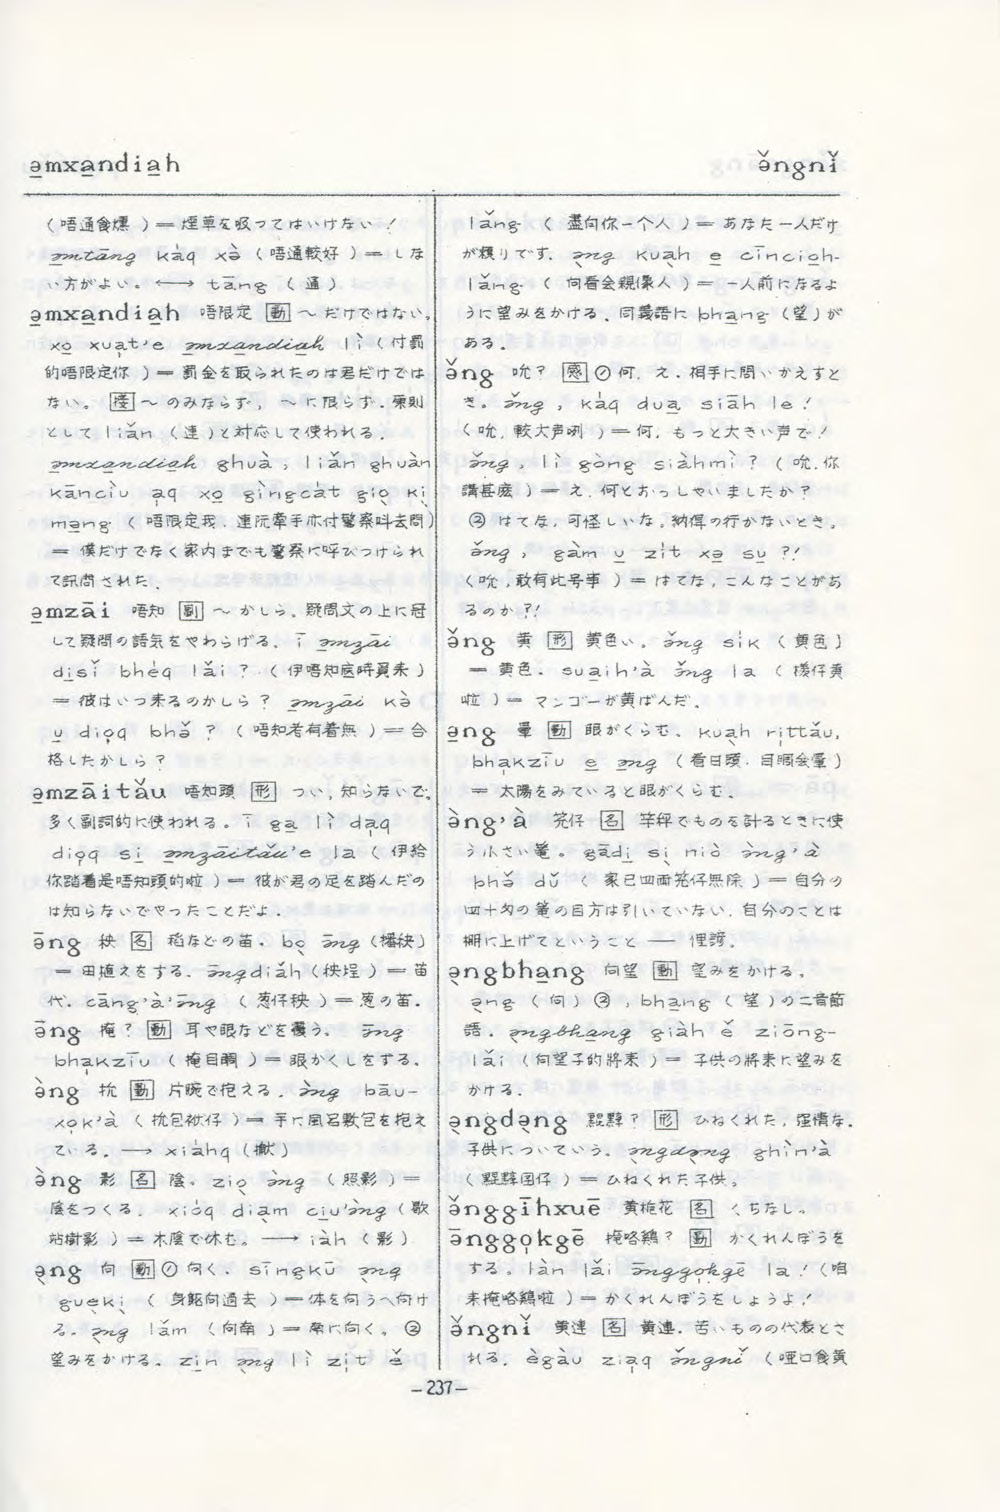 əmxandiah
ə̌ngnǐ
(唔通食燻)＝煙草を吸ってはいけない!
əmtāng kàq xə̀ (唔通較好)＝しな
い方がよい。←→ tāng (通)
əmxandiah 唔限定 [動] 〜だけではない。
xo xuat'e əmxandiah lì (付罰
的唔限定你)＝罰金を取られたのは君だけでは
ない。[接] 〜のみならず, 〜に限らず。原則
として liǎn (連)と対応して使われる。
əmxandiah ghuà, liǎn ghuàn
kāncìu aq xo gìngcat gio ki
mang (唔限定我, 連阮牽手亦付警察叫去問)
＝ 僕だけでなく家内までも警察に呼びつけられ
て訊問された。
əmzāi 唔知 [副] 〜かしら。疑問文の上に冠
して疑問の語気をやわらげる。 ī əmzāi
disǐ bhèq lǎi? (伊唔知底時買来)
＝彼はいつ来るのかしら? əmzāi kə̀
u dioq bhə̌ ? (唔知考有着無)＝合
格したかしら?
əmzāitǎu 唔知頭 [形] つい, 知らないで。
多く副詞的に使われる。ī ga lì daq
dioq si əmzāitǎu'e la (伊給
你踏着是唔知頭的啦)＝ 彼が君の足を踏んだの
は知らないでやったことだよ。
ə̄ng 秧 [名] 稲などの苗。bo ə̄ng (播秧)
＝田植えをする。ə̄ngdiǎh (秧埕)＝苗
代。cāng'à'ə̄ng (葱仔秧)＝葱の苗。
ə̄ng 掩? [動] 耳や眼などを覆う。 ə̄ng
bhakzīu (掩目睭)＝眼かくしをする。
ə̀ng 抗 [動] 片腕で抱える。ə̀ng bāu-
xok'à (抗包袱仔)＝手に風呂敷包を抱え
ている。→ xiahq (揿)
ə̀ng 影 [名] 陰。zio ə̀ng (照影)＝
陰をつくる。 xioq diam ciu'ə̀ng (歇
站樹影)＝木陰で休む。→ iàh (影)
əng 向 [動] ① 向く。sīngkū əng
gueki (身軀向過去)＝体を向うへ向け
る。əng lǎm (向南)＝南に向く。②
望みをかける。zin əng lì zit ě
lǎng (盡向你一个人)＝あなた一人だけ
が頼りです。əng kuah e cīncioh-
lǎng (向看会親像人)＝一人前になるよ
うに望みをかける。同義語に bhang (望)が
ある。
ə̌ng 吭? [感] ① 何, え。相手に問いかえすと
き。ə̌ng, kàq dua siāh le!
(吭, 較大声咧)＝何, もっと大きい声で!
ə̌ng, lì gòng siàhmì? (吭, 你
講甚麽)＝え, 何とおっしゃいましたか?
② はてな, 可怪しいな, 納得の行かないとき。
ə̌ng, gàm u zit xə su ?!
(吭, 敢有此号事)＝はてな, こんなことがあ
るのか?!
ə̌ng 黄 [形] 黄色い。ə̌ng sik (黄色)
＝ 黄色。suaih'à ə̌ng la (檨仔黄
啦)＝ マンゴーが黄ばんだ。
əng 暈 [動] 眼がくらむ。kuah rittǎu,
bhakzīu e əng (看日頭, 目睭会暈)
＝ 太陽をみていると眼がくらむ。
ə̀ng'à 笎仔 [名] 竿秤でものを計るときに使
う小さい篭。gādi si niò ə̀ng'à
bhə̌ dǔ (家己四両笎仔無除)＝自分の
四十匁の篭の目方は引いていない, 自分のことは
棚に上げてということ ― 俚諺。
əngbhang 向望 [動] 望みをかける。
əng (向) ②, bhang (望)の二音節
語。əngbhang giàh ě ziōng-
lǎi (向望子的将来)＝ 子供の将来に望みを
かける。
əngdəng [形] ひねくれた, 強情な。
子供についていう。əngdəng ghìn'à
＝ひねくれた子供。
ə̌nggīhxuē 黄梔花 [名] くちなし。
ə̄nggokgē 掩咯鶏? [動] かくれんぼうを
する。làn lǎi ə̄nggokgē la! (咱
来掩咯鶏啦)＝かくれんぼうをしようよ!
ə̌ngnǐ 黄連 [名] 黄連。苦いものの代表とさ
れる。 ègàu ziaq ə̌ngnǐ (啞口食黄
-237-